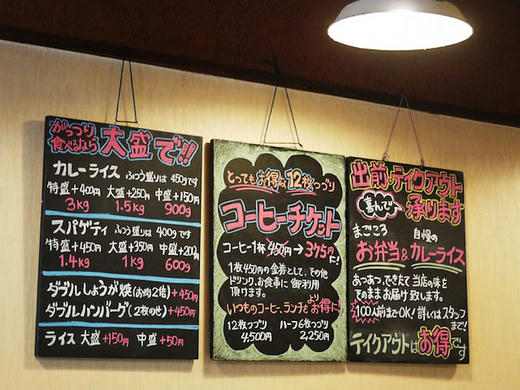 がっつり
食べるなら 大盛で!!
カレーライス ふつう盛りは 450gです
特盛+400円 大盛+250円 中盛+150円
3kg 1.5kg 900g
スパゲティ ふつう盛りは 400gです
特盛+450円 大盛+350円 中盛+200円
1.4kg 1kg 600g
ダブルしょうが焼(お肉2倍)+450円
ダブルハンバーグ(2枚のせ)+450円
ライス 大盛+150円 中盛+50円
とってもお得な12枚つづり
コーヒーチケット
コーヒー1杯 450円→375円に!
1枚450円の金券として、その他
ドリンク、お食事に御利用
頂けます。
いつものコーヒー、ランチをよりお得に!
12枚つづり ハーフ6枚つづり
4,500円 2,250円
出前・テイクアウト
喜んで♪ 承ります
まごころ 自慢の
お弁当&カレーライス
あつあつ、できたて 当店の味を
そのままお届け致します。
100人前までOK!詳しくはスタッフ
まで!
テイクアウトはお得です